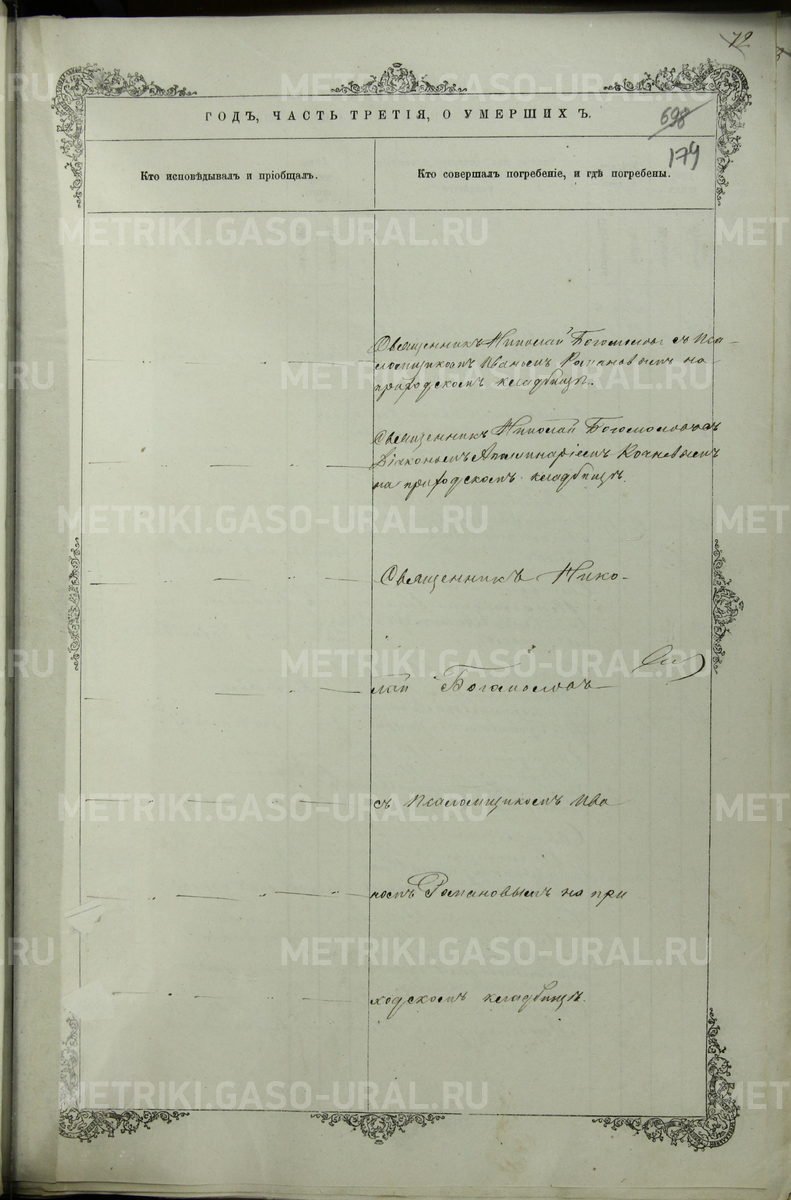 72
698
174
ГОДЪ, ЧАСТЬ ТРЕТІЯ, О УМЕРШИХЪ.
Кто исповѣдывалъ и пріобщалъ.
Кто совершалъ погребеніе, и гдѣ погребены.
Священникъ Николай Богомоловъ съ Пса-
ломщикомъ Иваномъ Романовымъ на
приходскомъ кладбищѣ.
Священникъ Николай Богомоловъ съ
Діакономъ Апполинаріемъ Кочневымъ
на приходскомъ кладбищѣ.
Священникъ Нико-
лай Богомоловъ
съ Псаломщикомъ Ива
номъ Романовымъ на при
ходскомъ кладбищѣ.
METRIKI.GASO-URAL.RU